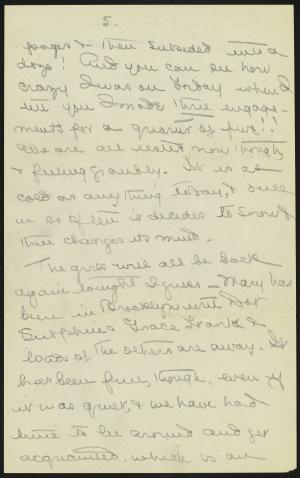 5.
pages & then subsided into a
doze! And you can see how
crazy I was on Friday when I
tell you I made three engage-
ments for a quarter of five!!
We are all rested now though,
& feeling grandly. It is as
cold as anything today, & once
in so often it decides to snow &
then changes its mind.
The girls will all be back
again tonight I guess – Mary has
been in Brooklyn with Dot
Grace Frank &
loads of the others are away. It
has been fine, though, even if
it was quiet, & we have had
time to lie around and get
acquainted, which is an